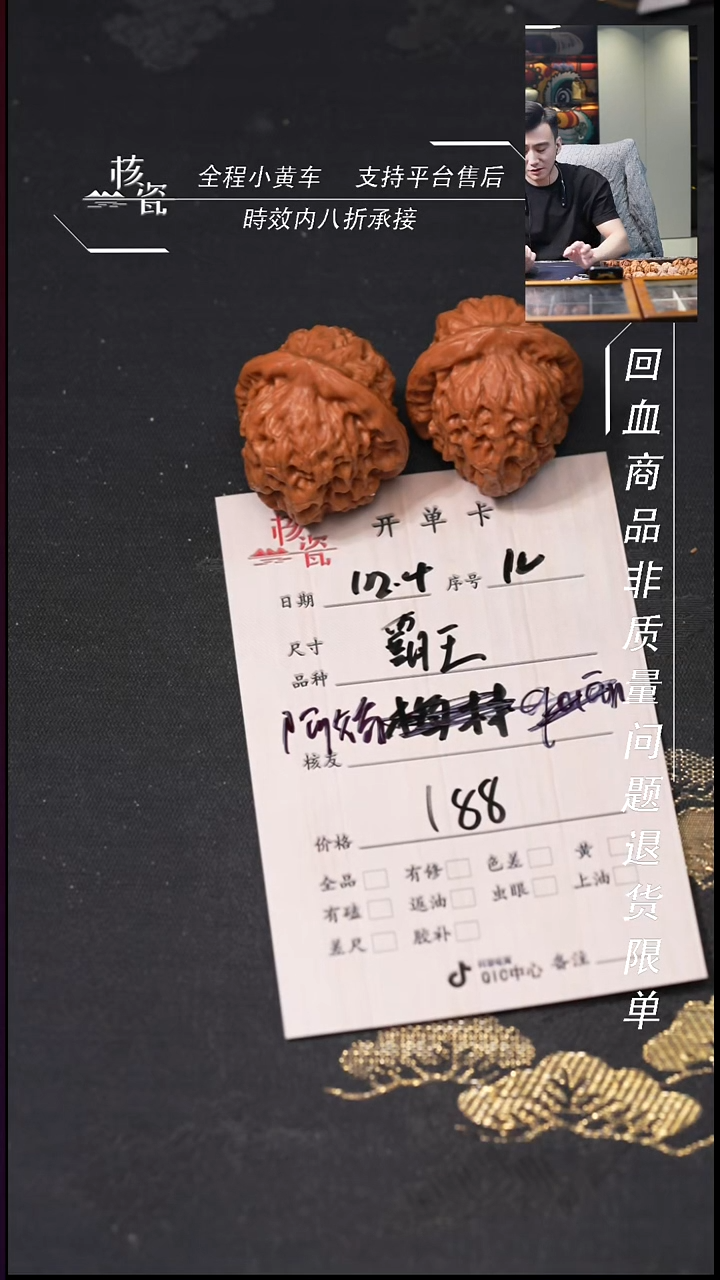 核瓷
全程小黄车 支持平台售后
時效内八折承接
回血商品非质量问题退货限单
核瓷 开单卡
日期 序号 12
尺寸
品种 霸王
核友
价格 188
全品 有修 色差 黄
有磕 返油 虫眼 上油
差尺 胶补
QIC中心 备注